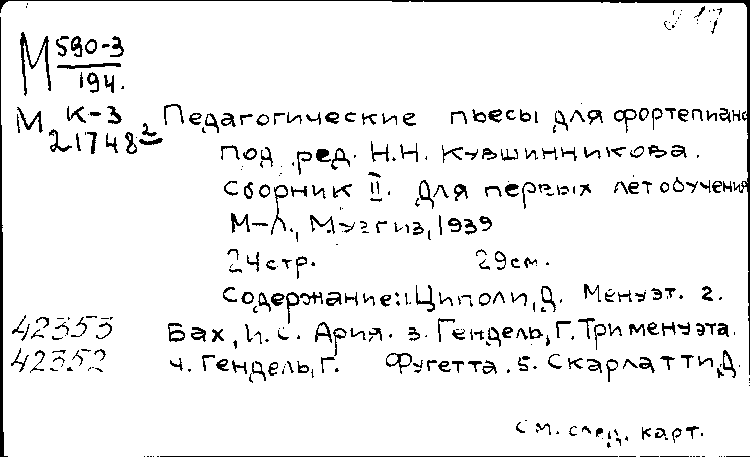 217
М 590-3
194.
М К-3
21748 2 Педагогические пьесы для фортепиано
под ред. Н.Н. Кувшинникова.
Сборник II. Для первых лет обучения
М-Л., Музгиз, 1939
24 стр. 29 см.
Содержание: 1. Циполи, Д. Менуэт. 2.
42353 Бах, И. С. Ария. 3. Гендель, Г. Три менуэта.
42352 4. Гендель, Г. Фугетта. 5. Скарлатти, Д.
См. след. карт.